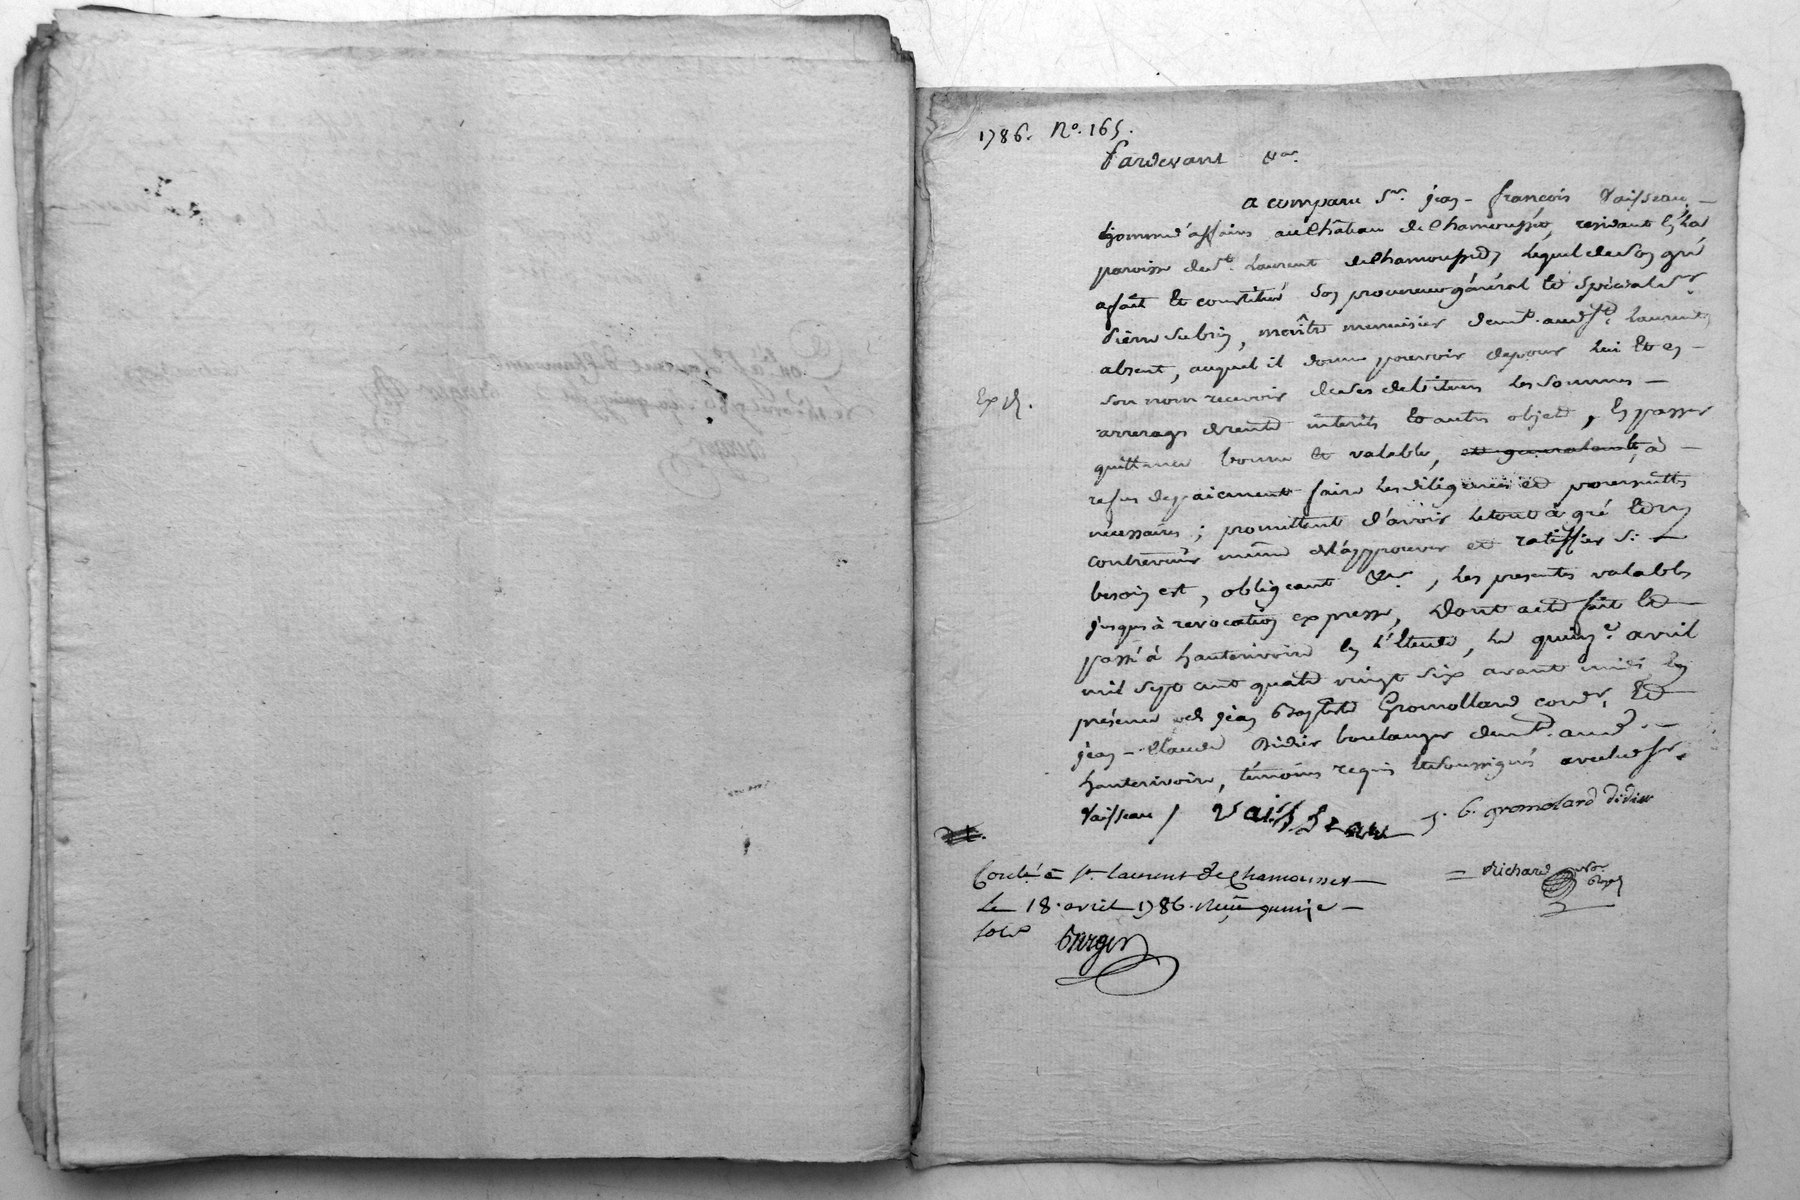 1786. N°. 165.
Pardevant &ar.
a comparu Sr. jean-françois Vaisseau
homme d'affaires au château de Chamousset, résidant en la
paroisse de St. Laurent de Chamousset, lequel de son gré
a fait et constitué son procureur général et spécial Sr.
pierre Subrin, maître menuisier demt. audt. St. Laurent
absent, auquel il donne pouvoir de pour lui et en
son nom recevoir de ses debiteurs les sommes
arrerages de rente intérêts et autres objets, en passer
quittance bonne et valable, et generalement, à
refus de paiement faire les diligences et poursuittes
nécessaires; promettant d'avoir le tout à gré et n'y
contrevenir même de l'approuver et ratiffier si
besoin est, obligeant &ar, les presentes valables
jusques à revocation expresse, dont acte fait et
passé à hauterivoire en l'Etude, le quinze avril
mil sept cent quatre vingt six avant midi en
présence de jean Baptiste Gromollard cordr. et
jean-claude Didier boulanger demt. aud.
hauterivoire, témoins requis et soussignés avec led. Sr.
Vaisseau /. Vaisseau J. B. gromolard didier
Exp.
Conlé à St. laurent de Chamousset
= Richard Nore. Royal
Le 18. avril 1786. Reçu quinze
sols
Berger